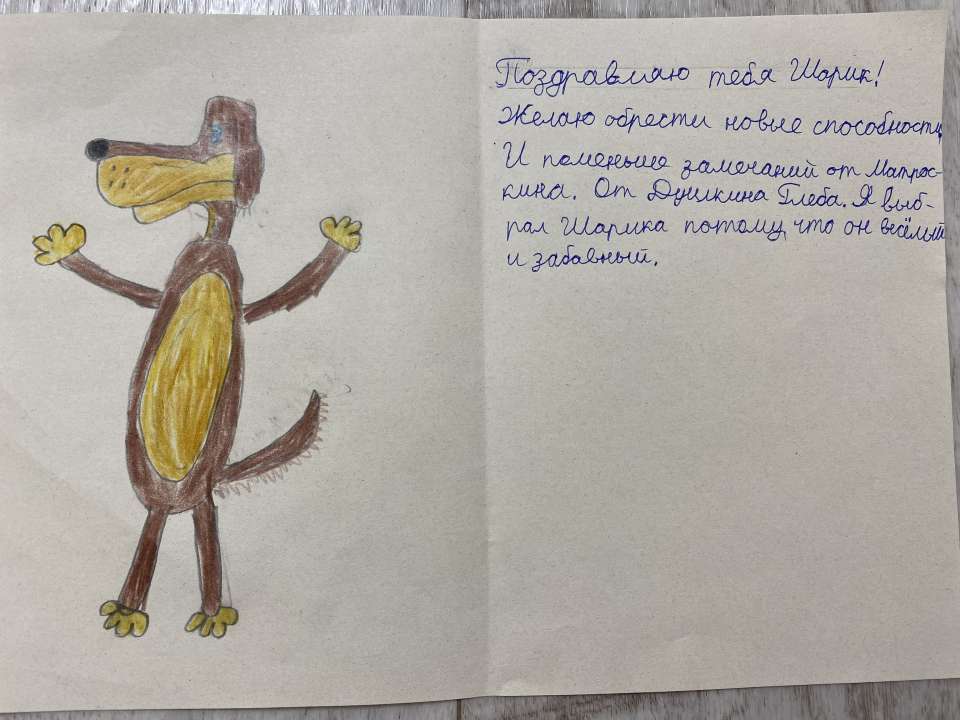 Поздравлаю тебя Шарик!
Желаю обрести новые способности,
И поменьше замечаний от Матрос-
кина. От Душкина Глеба. Я выб-
рал Шарика потому, что он весёлый
и забавный.